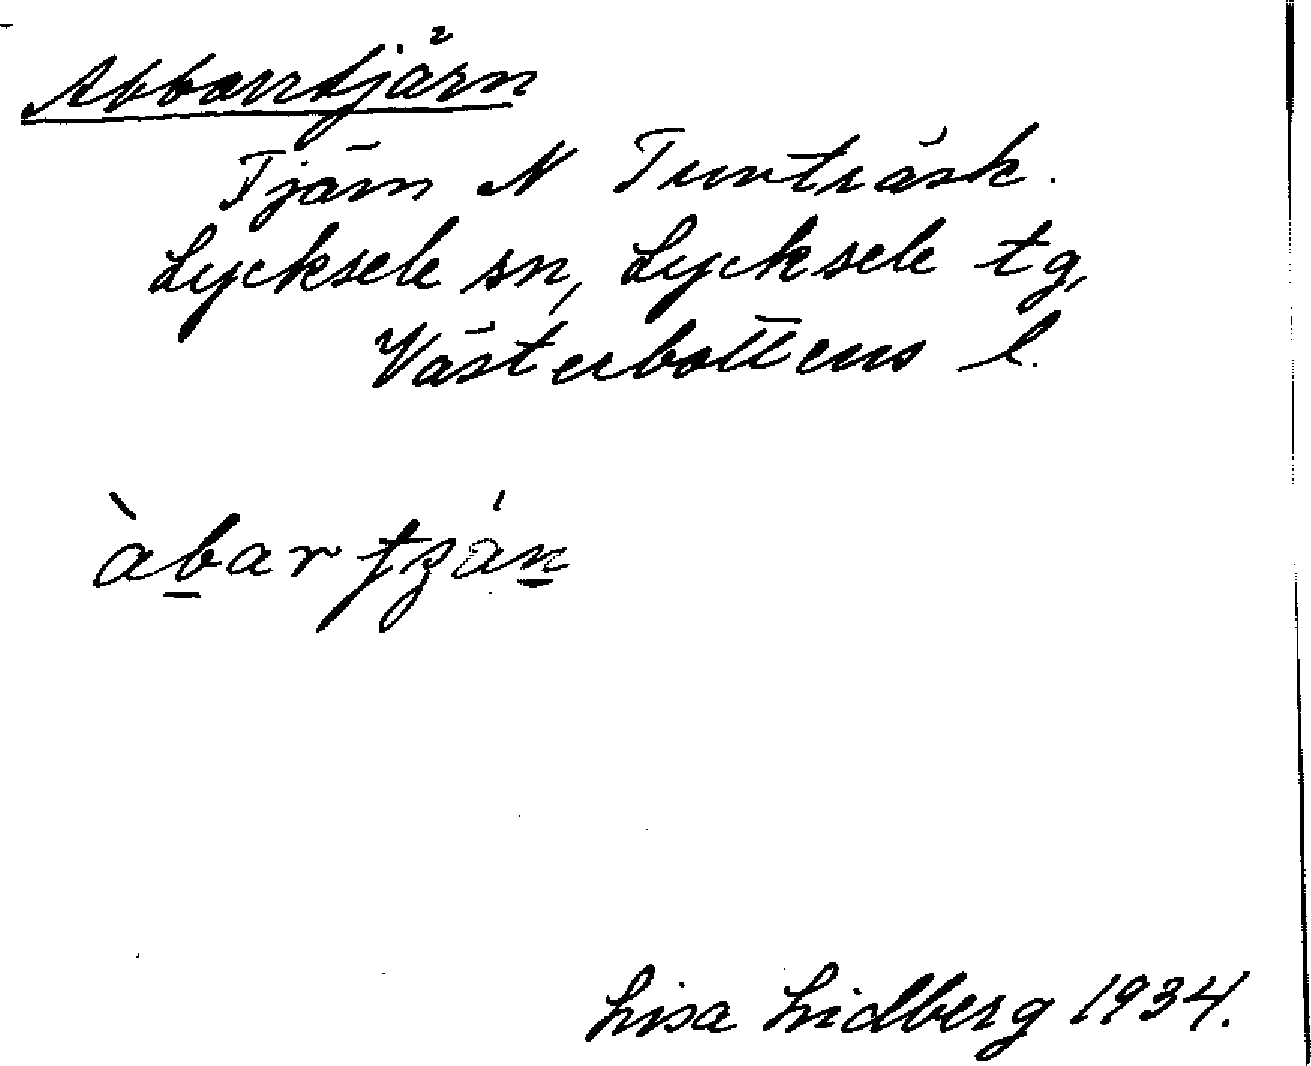 Abborrtjärn
Tjärn N Tunträsk.
Lycksele sn, Lycksele tg,
Västerbottens l.
àbar tʒán
Lisa Lidberg 1934.